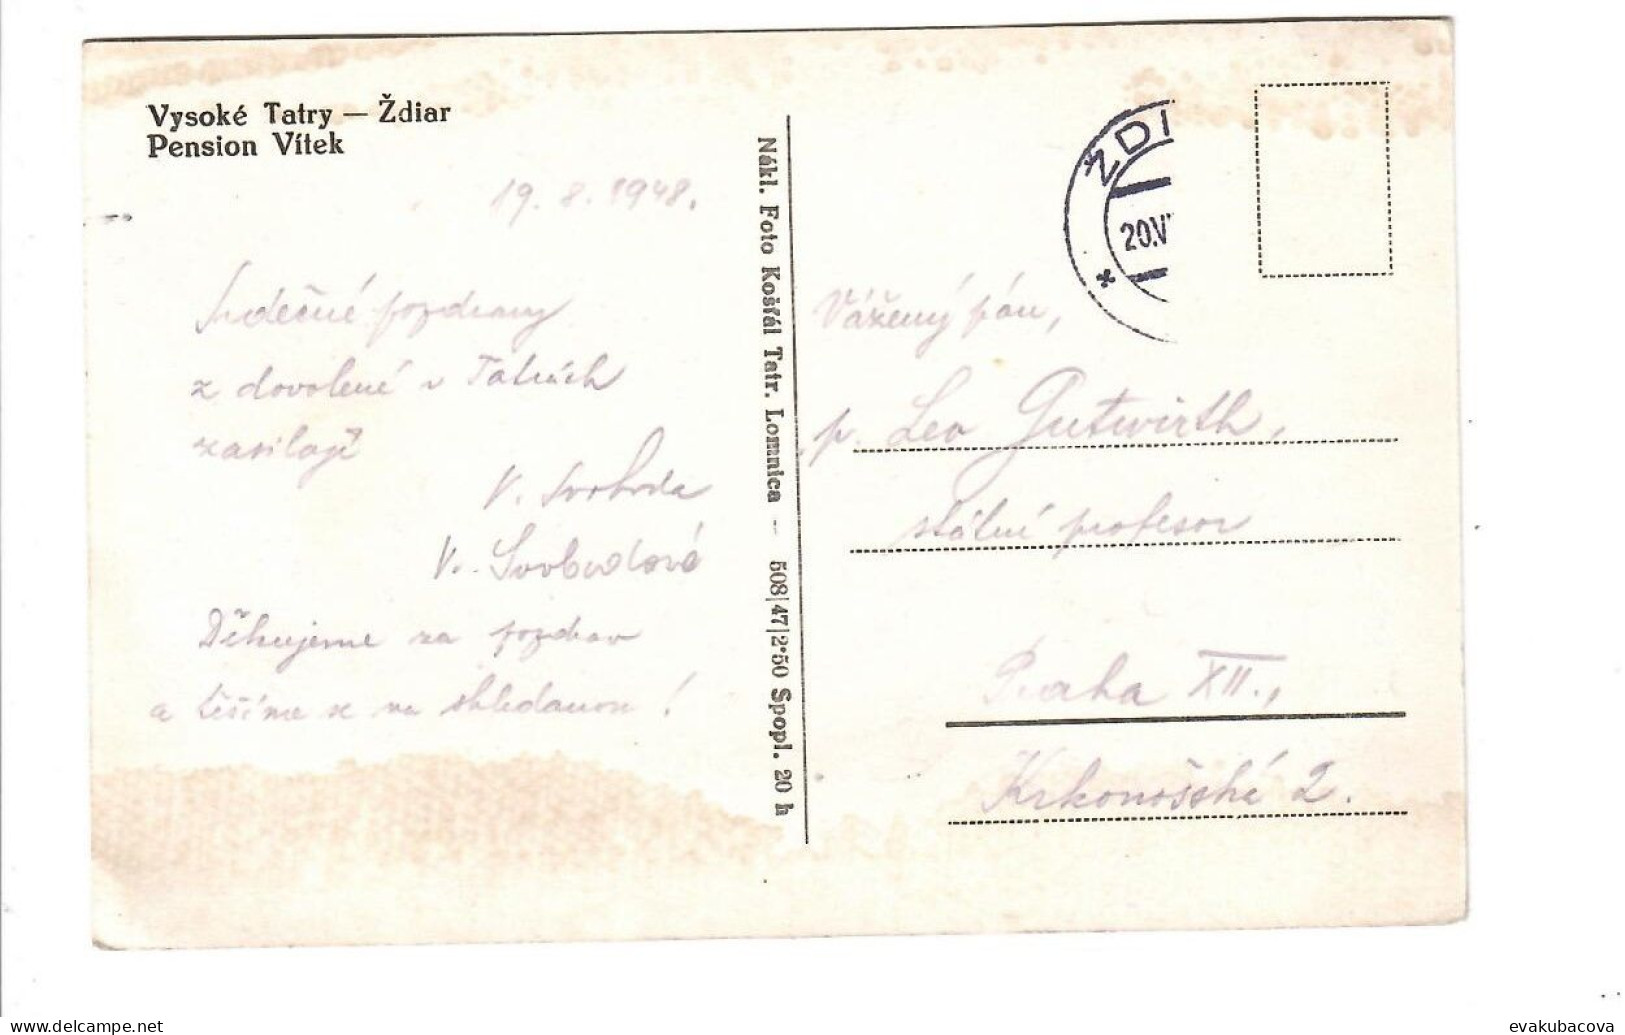 Vysoké Tatry — Ždiar
Pension Vítek
19. 8. 1948.
Srdečné pozdravy
z dovolené v Tatrách
zasílají
V. Svoboda
V. Svobodová
Děkujeme za pozdrav
a těšíme se na shledanou!
Nákl. Foto Košťál Tatr. Lomnica — 508|47|2·50 Spopl. 20 h
ŽDI
20.V
Vážený pán,
p. Leo Gutwirth,
státní profesor
Praha XII.,
Krkonošská 2.
evakubacova